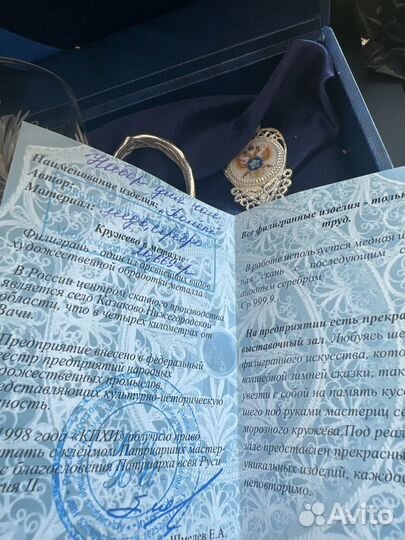 Наименование изделия: Набор для соли
Автор:
Материал: медь, серебро
Кружево в металле
Филигрань - один из древнейших видов
художественной обработки металла
В России центром сканого производства
является село Казаково Нижегородской
области, что в четырех километрах от
Вачи.
Предприятие внесено в федеральный
естр предприятий народных
дожественных промыслов,
едставляющих культурно-историческую
ность.
1998 года «КПХИ» получило право
тать с клеймом Патриарших мастер-
с благословения Патриарха всея Руси
ия II.
Шмелев Е.А.
Все филигранные изделия - только
труд.
В работе используется медная и
как скань с последующим с
анодным серебром
Ср 999,9.
На предприятии есть прекрас
выставочный зал. Любуясь ше
филигранного искусства, кото
волшебной зимней сказки, так
увезти с собой на память кус
шего под руками мастериц се
морозного кружева. Под реал
зале представлен прекрасны
уникальных изделий, каждое
неповторимо.
Avito